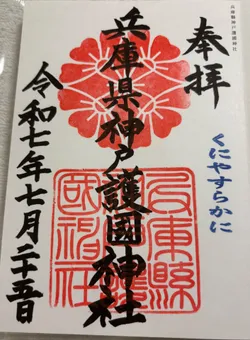 兵庫縣神戸護國神社
奉拝
くにやすらかに
兵庫県神戸護國神社
令和七年七月二十五日
兵庫縣
護國神社